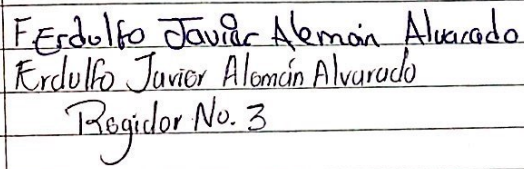 F Erdulfo Javier Alemán Alvarado
Erdulfo Javier Alemán Alvarado
Regidor No. 3